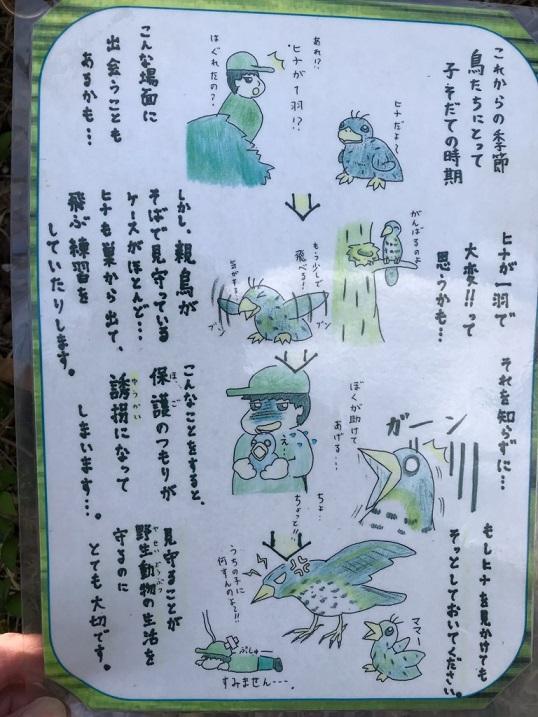 これからの季節
鳥たちにとって
子そだての時期
ヒナだよ〜
あれ!?
ヒナが1羽!?
はぐれたの?
こんな場面に
出会うことも
あるかも…
ヒナが一羽で
大変!!って
思うかも…
がんばるのよ
もう少しで
飛べる!
気がする!
ブン
ブン
しかし、親鳥が
そばで見守っている
ケースがほとんど…
ヒナも巣から出て、
飛ぶ練習を
していたりします。
それを知らずに…
ガーン
ぼくが助けて
あげる…
え…
ちょ…
ちょっと!!
こんなことをすると、
保護のつもりが
ほご
誘拐になって
ゆうかい
しまいます…。
もしヒナを見かけても
そっとしておいてください。
ママー
うちの子に
何すんのよ!!
ぷしゅ〜
すみません…。
見守ることが
野生動物の生活を
やせいどうぶつ
守るのに
とても大切です。